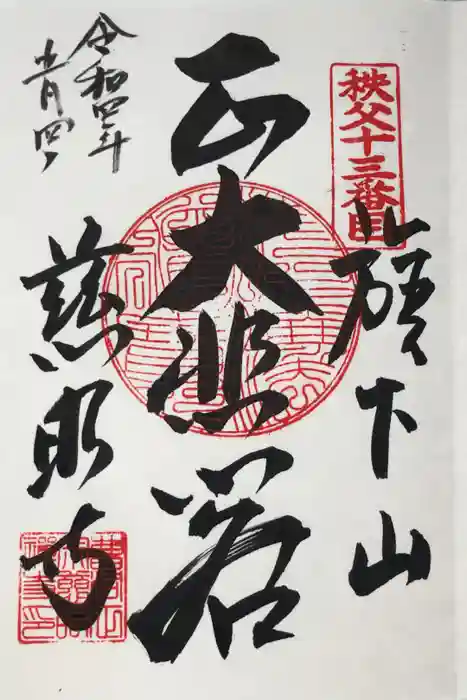 秩父十三番目
旗下山
正大悲閣
慈眼寺
令和四年
十一月四日